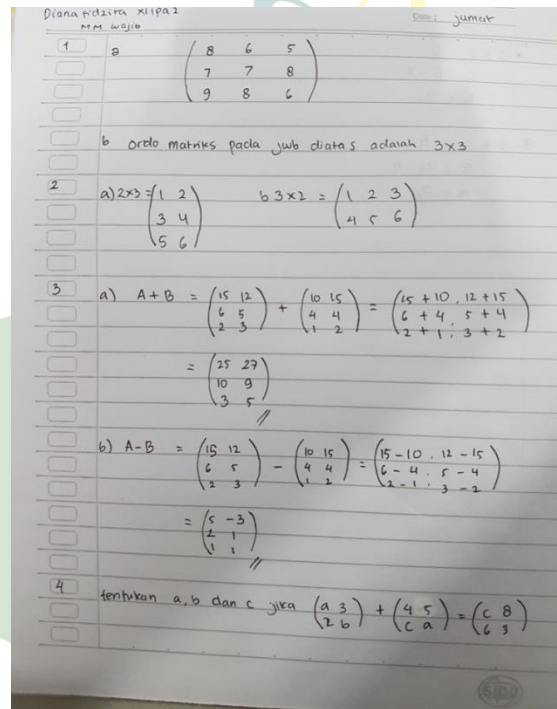 Diana Fidzira XI IPA 2
MM Wajib
Date: jumat
1 a ( 8 6 5
7 7 8
9 8 6 )
b ordo matriks pada jwb diatas adalah 3x3
2 a) 2x3 = ( 1 2
3 4
5 6 )
b 3x2 = ( 1 2 3
4 5 6 )
3 a) A+B = ( 15 12
6 5
2 3 ) + ( 10 15
4 4
1 2 ) = ( 15 + 10 , 12 + 15
6 + 4 , 5 + 4
2 + 1 , 3 + 2 )
= ( 25 27
10 9
3 5 )
b) A-B = ( 15 12
6 5
2 3 ) - ( 10 15
4 4
1 2 ) = ( 15 - 10 , 12 - 15
6 - 4 , 5 - 4
2 - 1 , 3 - 2 )
= ( 5 -3
2 1
1 1 )
4 tentukan a, b dan c jika ( a 3
2 b ) + ( 4 5
c a ) = ( c 8
6 3 )
SIDU